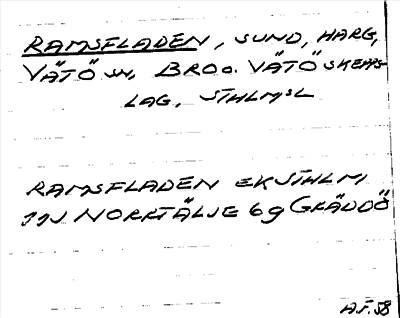 RAMSFLADEN, SUND, HARG,
VÄTÖ SN, BRO o. VÄTÖ SKEPPS-
LAG, STHLMSL
RAMSFLADEN EKSTHLM 1
11J NORRTÄLJE 6g GRÄDDÖ
A.F. 58